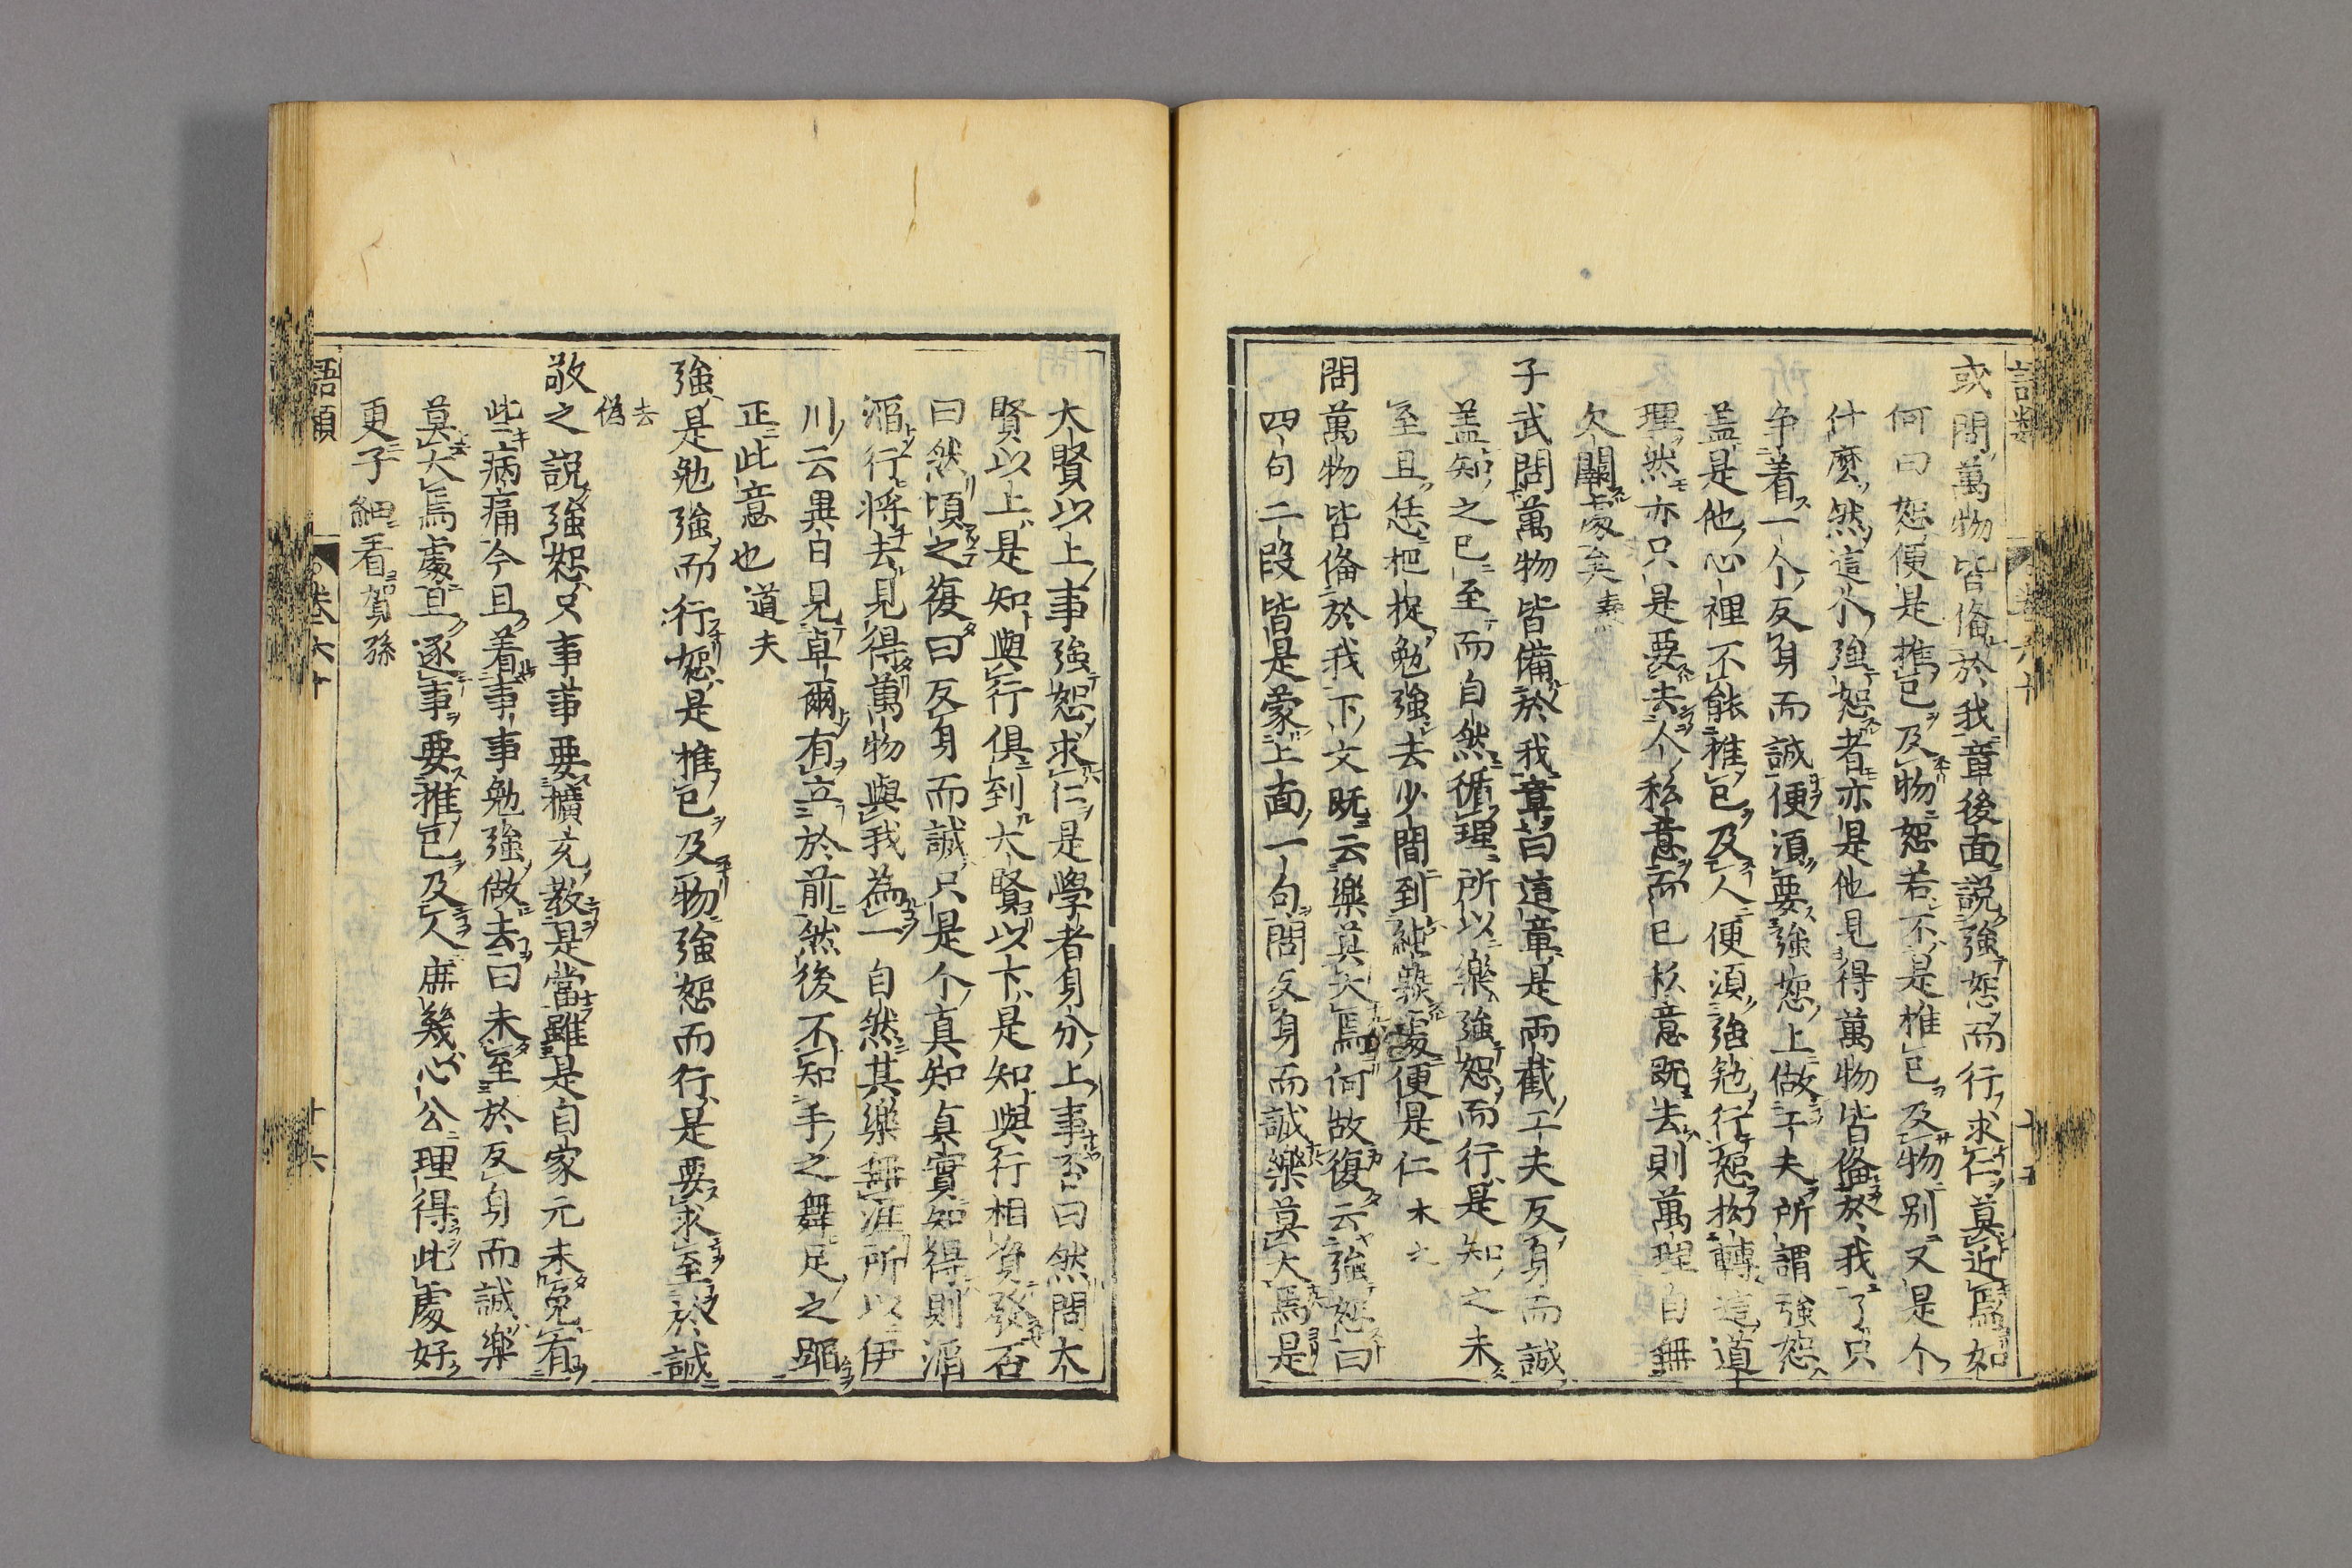 或問萬物皆備於我章後面說強恕而行求仁莫近焉如
何曰恕便是推己及物恕若不是推己及物別又是个
什麼然這个強恕者亦是他見得萬物皆備於我了只
争着一个反身而誠便湏要強恕上做工夫所謂強恕
盖是他心裡不能推己及人便湏強勉行恕拗轉這道
理然亦只是要去个私意而已私意既去則萬理自無
欠闕處矣
子武問萬物皆備於我章曰這章是兩截工夫反身而誠
盖知之已至而自然循理所以樂強恕而行是知之未
至且恁把捉勉強去少間到純熟處便是仁 木之
問萬物皆備於我下文既云樂莫大焉何故復云強恕曰
四句二段皆是蒙上面一句問反身而誠樂莫大焉是
大賢以上事強恕求仁是學者身分上事否曰然問大
賢以上是知與行俱到大賢以下是知與行相資發否
曰然頃之復曰反身而誠只是个真知真實知得則滔
滔行將去見得萬物與我為一自然其樂無涯所以伊
川云異日見卓爾有立於前然後不知手之舞足之蹈
正此意也道夫
強是勉強而行恕是推己及物強恕而行是要求至於誠
去偽
敬之說強恕只事事要擴充教是當雖是自家元未免有
些病痛今且着事事勉強做去曰未至於反身而誠樂
莫大焉處且逐事要推己及人庶幾心公理得此處好
更子細看賀孫
語類
卷六十
十六